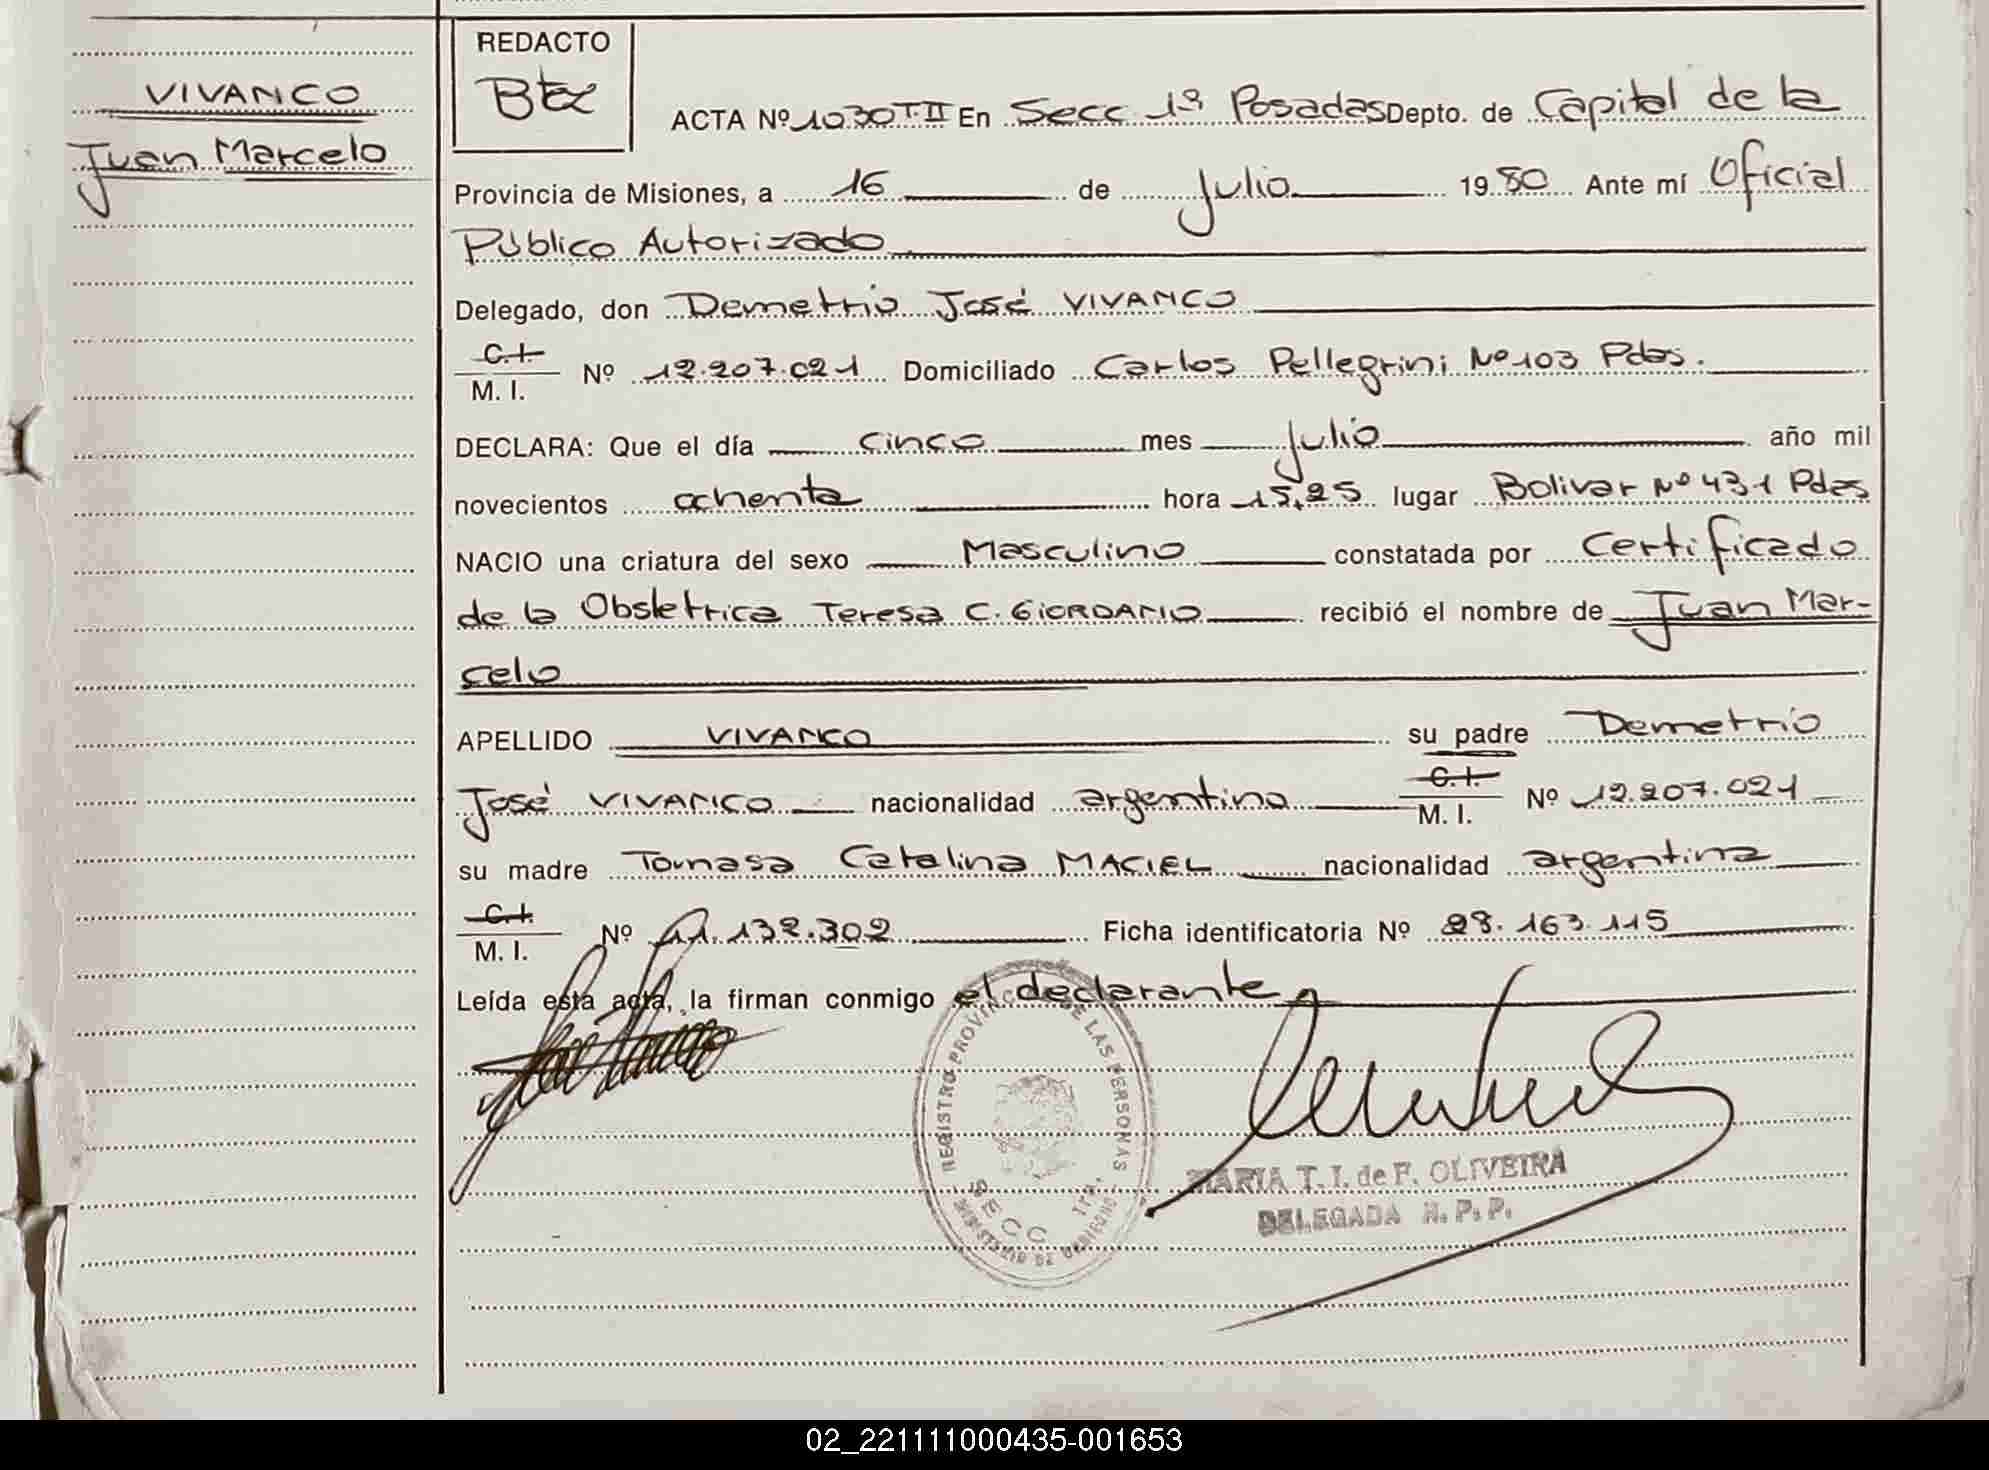 VIVANCO
Juan Marcelo
REDACTO
ACTA Nº 1030 T. II En Secc 1ª Posadas Depto. de Capital de la
Provincia de Misiones, a 16 de Julio 1980 Ante mí Oficial
Público Autorizado
Delegado, don Demetrio José VIVANCO
C.I.
M. I. Nº 12.207.021 Domiciliado Carlos Pellegrini Nº 103 Pdas.
DECLARA: Que el día cinco mes julio año mil
novecientos ochenta hora 15,25 lugar Bolivar Nº 431 Pdas
NACIO una criatura del sexo Masculino constatada por Certificado
de la Obstetrica Teresa C. GIORDANO recibió el nombre de Juan Mar-
celo
APELLIDO VIVANCO su padre Demetrio
José VIVANCO nacionalidad argentino C.I. M. I. Nº 12.207.021
su madre Tomasa Catalina MACIEL nacionalidad argentina
C.I.
M. I. Nº 11.132.302 Ficha identificatoria Nº 28.163.115
Leída esta acta, la firman conmigo el declarante
REGISTRO PROVINC DE LAS PERSONAS
SECC 1ra.
MINISTERIO DE GOBIERNO
MARIA T. I. de F. OLIVEIRA
DELEGADA R. P. P.
02_221111000435-001653